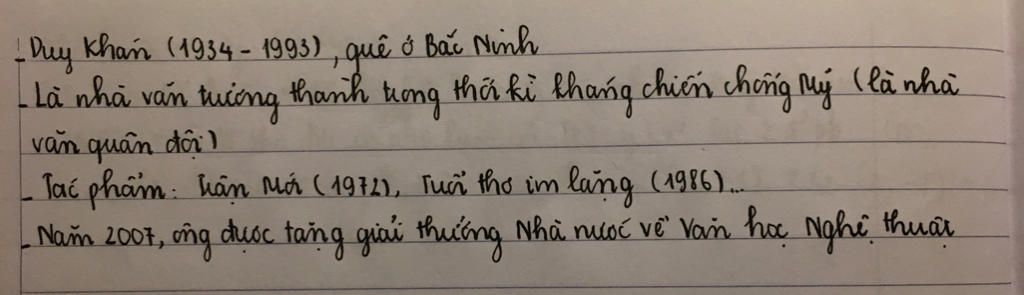 - Duy Khán (1934 - 1993), quê ở Bắc Ninh
- Là nhà văn trưởng thành trong thời kì kháng chiến chống Mỹ (là nhà
văn quân đội)
- Tác phẩm: Trận Mới (1972), Tuổi thơ im lặng (1986)...
- Năm 2007, ông được tặng giải thưởng Nhà nước về Văn học Nghệ thuật